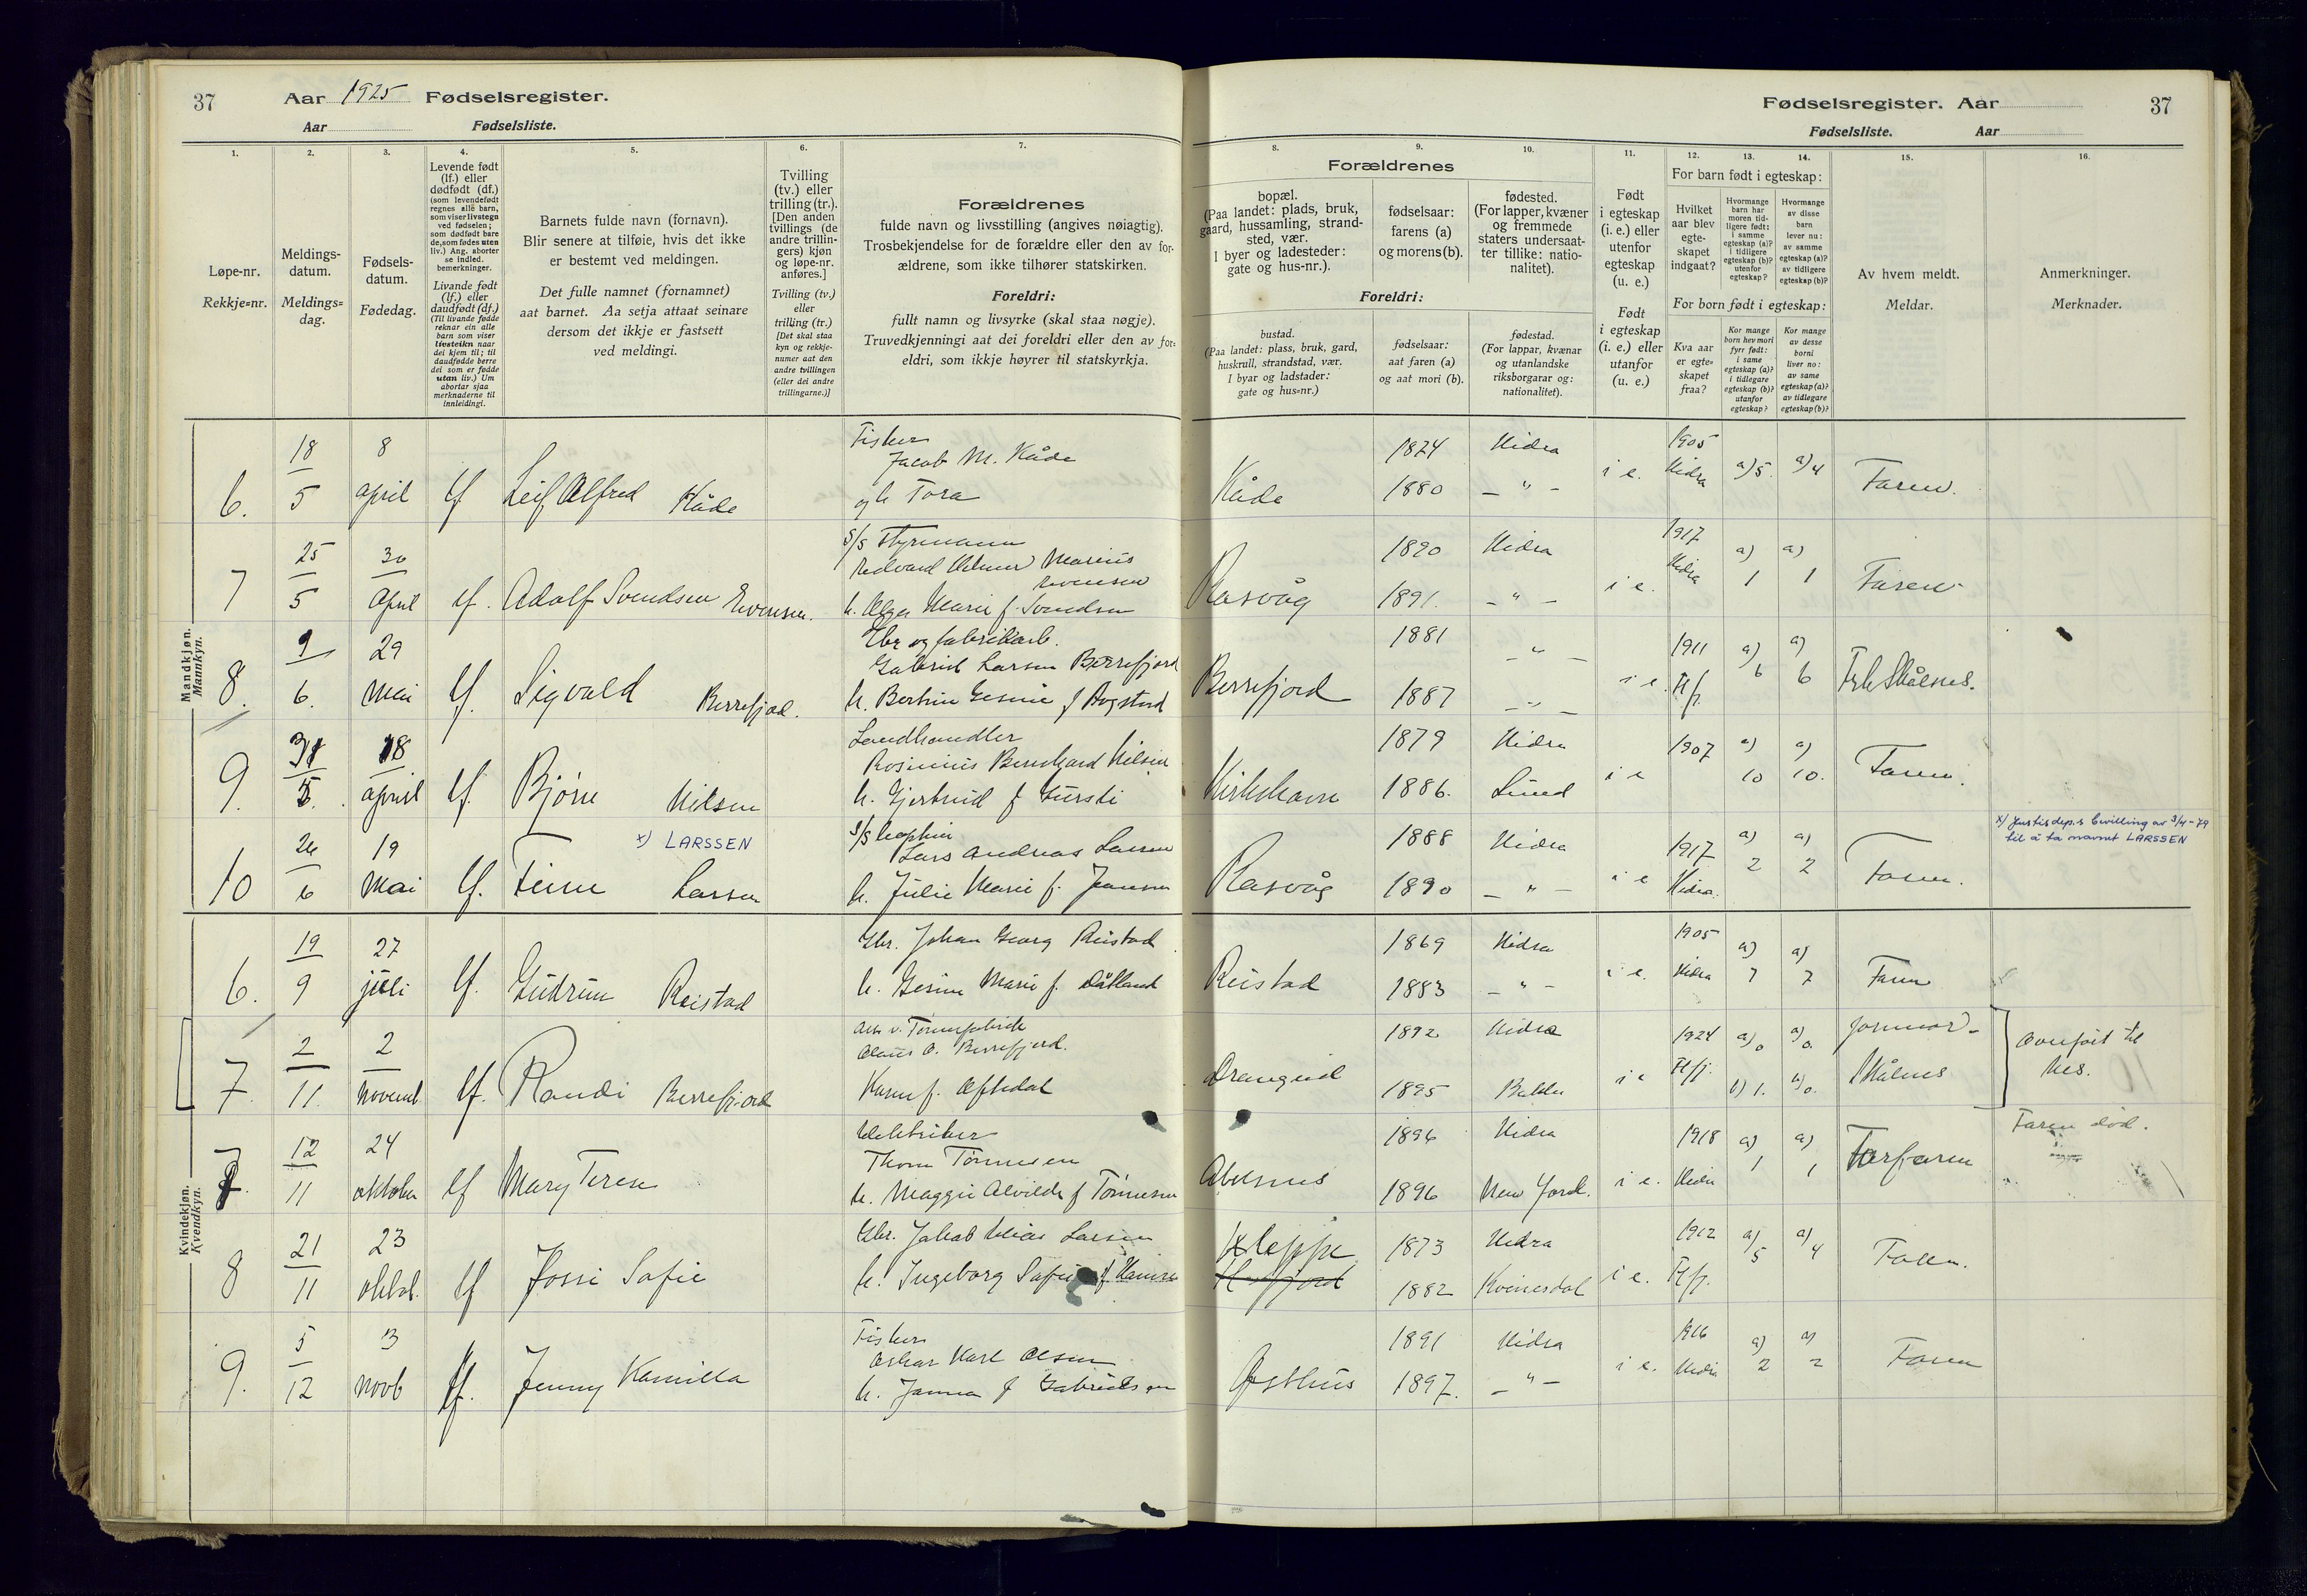 37
Aar 1925 Fødselsregister.
Aar Fødselsliste.
1.
2.
3.
4.
5.
6.
7.
Løpe-nr.
Rekkje=nr.
Meldings-
datum.
Meldings=
dag.
Fødsels-
datum.
Fødedag.
Levende født
(lf.) eller
dødfødt (df.)
(som levendefødt
regnes alle barn,
som viser livstegn
ved fødselen;
som dødfødt bare
de, som fødes uten
liv.) Ang. aborter
se indled.
bemerkninger.
Livande født
(lf.) eller
daudfødt (df.)
(Til livande fødde
reknar ein alle
barn som viser
livsteikn naar
dei kjem til; til
daudfødde berre
dei som er fødde
utan liv.) Um
abortar sjaa
merknaderne til
innleidingi.
Barnets fulde navn (fornavn).
Blir senere at tilføie, hvis det ikke
er bestemt ved meldingen.
Det fulle namnet (fornamnet)
aat barnet. Aa setja attaat seinare
dersom det ikkje er fastsett
ved meldingi.
Tvilling
(tv.) eller
trilling (tr.).
[Den anden
tvillings (de
andre trillin-
gers) kjøn
og løpe-nr.
anføres.]
Tvilling (tv.)
eller
trilling (tr.)
[Det skal staa
kyn og rekkje-
numer aat den
andre tvillingen
(eller dei andre
trillingarne.)]
Forældrenes
fulde navn og livsstilling (angives nøiagtig).
Trosbekjendelse for de forældre eller den av for-
ældrene, som ikke tilhører statskirken.
Foreldri:
fullt namn og livsyrke (skal staa nøgje).
Truvedkjenningi aat dei foreldri eller den av for=
eldri, som ikkje høyrer til statskyrkja.
Fødselsregister. Aar
37
Fødselsliste. Aar
8.
9.
10.
11.
12.
13.
14.
15.
16.
Forældrenes
bopæl.
(Paa landet: plads, bruk,
gaard, hussamling, strand-
sted, vær.
I byer og ladesteder:
gate og hus-nr.).
fødselsaar:
farens (a)
og morens (b).
fødested.
(For lapper, kvæner
og fremmede
staters undersaat-
ter tillike: natio-
nalitet).
Foreldri:
bustad.
(Paa landet: plass, bruk, gard,
huskrull, strandstad, vær.
I byar og ladstader:
gate og hus=nr.)
fødselsaar:
aat faren (a)
og aat mori (b).
fødestad.
(For lappar, kvænar
og utanlandske
riksborgarar og:
nationalitet).
Født
i egteskap
(i. e.) eller
utenfor
egteskap
(u. e.)
Født
i egteskap
(i. e.) eller
utanfor
(u. e.)
For barn født i egteskap:
Hvilket
aar blev
egte-
skapet
indgaat?
Hvormange
barn har
moren tid-
ligere født:
i samme
egteskap (a)?
i tidligere
egteskap (b)?
utenfor
egteskap?
Hvormange
av disse
barn
lever nu:
av samme
egteskap (a)?
av tidligere
egteskap (b)?
For born født i egteskap:
Kva aar
er egte=
skapet
fraa?
Kor mange
born hev mori
fyrr født:
i same
egteskap (a)?
i tidlegare
egteskap (b)?
utanfor
egteskap?
Kor mange
av desse
borni
liver no:
av same
egteskap (a)?
av tidlegare
egteskap (b)?
Av hvem meldt.
Meldar.
Anmerkninger.
Merknader.
Mandkjøn.
Mannkyn.
6. 18/5 8 april lf Leif Alfred Kåde
Fisker
Jacob M. Kåde
og h Tora
Kåde 1824 Hidra
1880 — " —
i e. 1905 Hidra a) 5. a) 4 Faren.
7 25/5 30 april lf. Adolf Svendsen Evensen.
S/s Styrmann
Marius
h. Olga Marie f. Svendsen
Rasvåg 1890 Hidra
1891. — " —
i e. 1917 Hidra a) 1 a) 1 Faren
8. 9/6. 29 mai lf. Sigvald Berrefjord.
Gbr og fabrikarb.
Gabriel Larsen Berrefjord
h. Bertine Gesine f Bogstad
Berrefjord 1881 — " —
1887 — " —
i e. 1911 Fl fj. a) 6 a) 6 Frk Skålnes.
9. 31/5. 18 april lf. Bjørn Nilsen
Landhandler
Rosinius Bernhard Nilsen
h. Gjertrud f Gursli
Kirkehavn 1879 Hidra
1886. Lund
i e 1907 a) 10 a) 10. Faren.
10 24/6 19 mai lf. Finn Larsen
x) LARSSEN
S/s kaptein
Lars Andreas Larsen
h. Julie Marie f. Jensen
Rasvåg 1888 Hidra
1890 — " —
i e 1917 Hidra. a) 2 a) 2 Faren.
x) Justisdep.s bevilling av 3/4-79
til å ta navnet LARSSEN
Kvindekjøn.
Kvendkyn.
6. 19/9 27 juli lf. Gudrun Reistad
Gbr. Johan Georg Reistad
h. Gesine Marie f. Dåtland
Reistad 1869 Hidra
1883 — " —
i e. 1905 Hidra a) 7 a) 7 Faren
7. 2/11. 2 novemb. lf. Randi Berrefjord
Arb. v. Tønnefabrik
Claus O. Berrefjord.
Karen f. Aftedal
Drangeid 1892 Hidra
1895
i e 1924 Fl fj. a) 0 a) 0. b) 1. b) 0. Jormor-
Skålnes
Overført til
Nes.
7 12/11 24 oktober lf Mary Terese
Elektriker
Thom Tønnesen
h. Maggie Alvilde f Tønnesen
Abelsnes 1896 Hidra
1896 New York.
i e. 1918 Hidra a) 1 a) 1 Farfaren
Faren død.
8 21/11 23 oktob. lf Jossi Sofie
Gbr. Jakob Elias Larsen
h. Ingeborg Sofie f. Hansen
Kleppe 1873 Hidra
1882 Kvinesdal
i e. 1912 Fl fj. a) 5 a) 4 Faren.
9. 5/12 3 novb lf. Jenny Kamilla
Fisker
Oskar Karl Olsen
h. Janna f Gabrielsen
Østhus 1891 Hidra
1897. — " —
i e. 1916 Hidra a) 2 a) 2 Faren